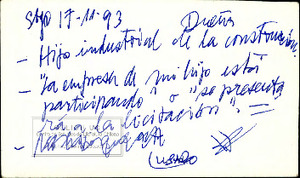 Stgo 17-11-93 Dueña
- Hijo industrial de la construcción.
- "la empresa de mi hijo está
participando" o "se presenta
rá a la licitación".
-